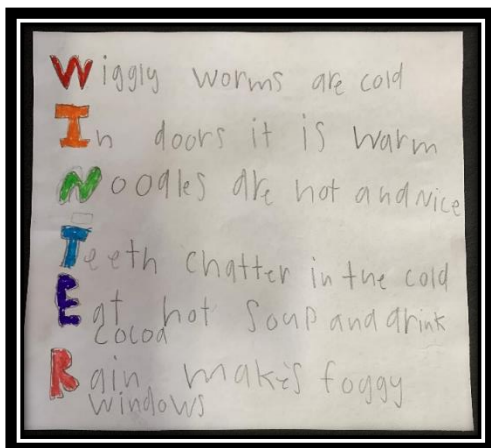 Wiggly worms are cold
In doors it is warm
Noodles are hot and Nice
Teeth chatter in the cold
Eat hot soup and drink
cocoa
Rain makes foggy
windows